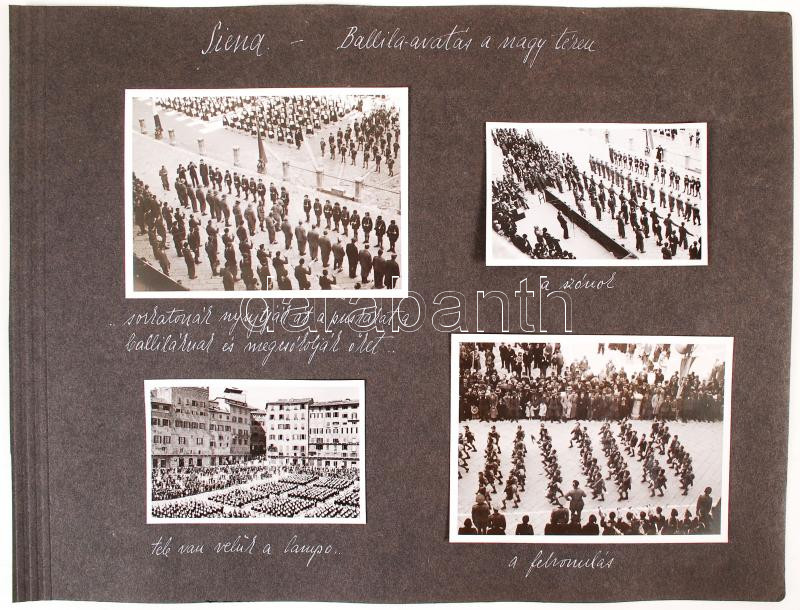 Siena. – Ballila-avatás a nagy téren
a szónok
.. sorkatonák nyujtják át a puskákat a
ballilának és megcsókolják őket..
darabanth
tele van velük a campo..
a felvonulás